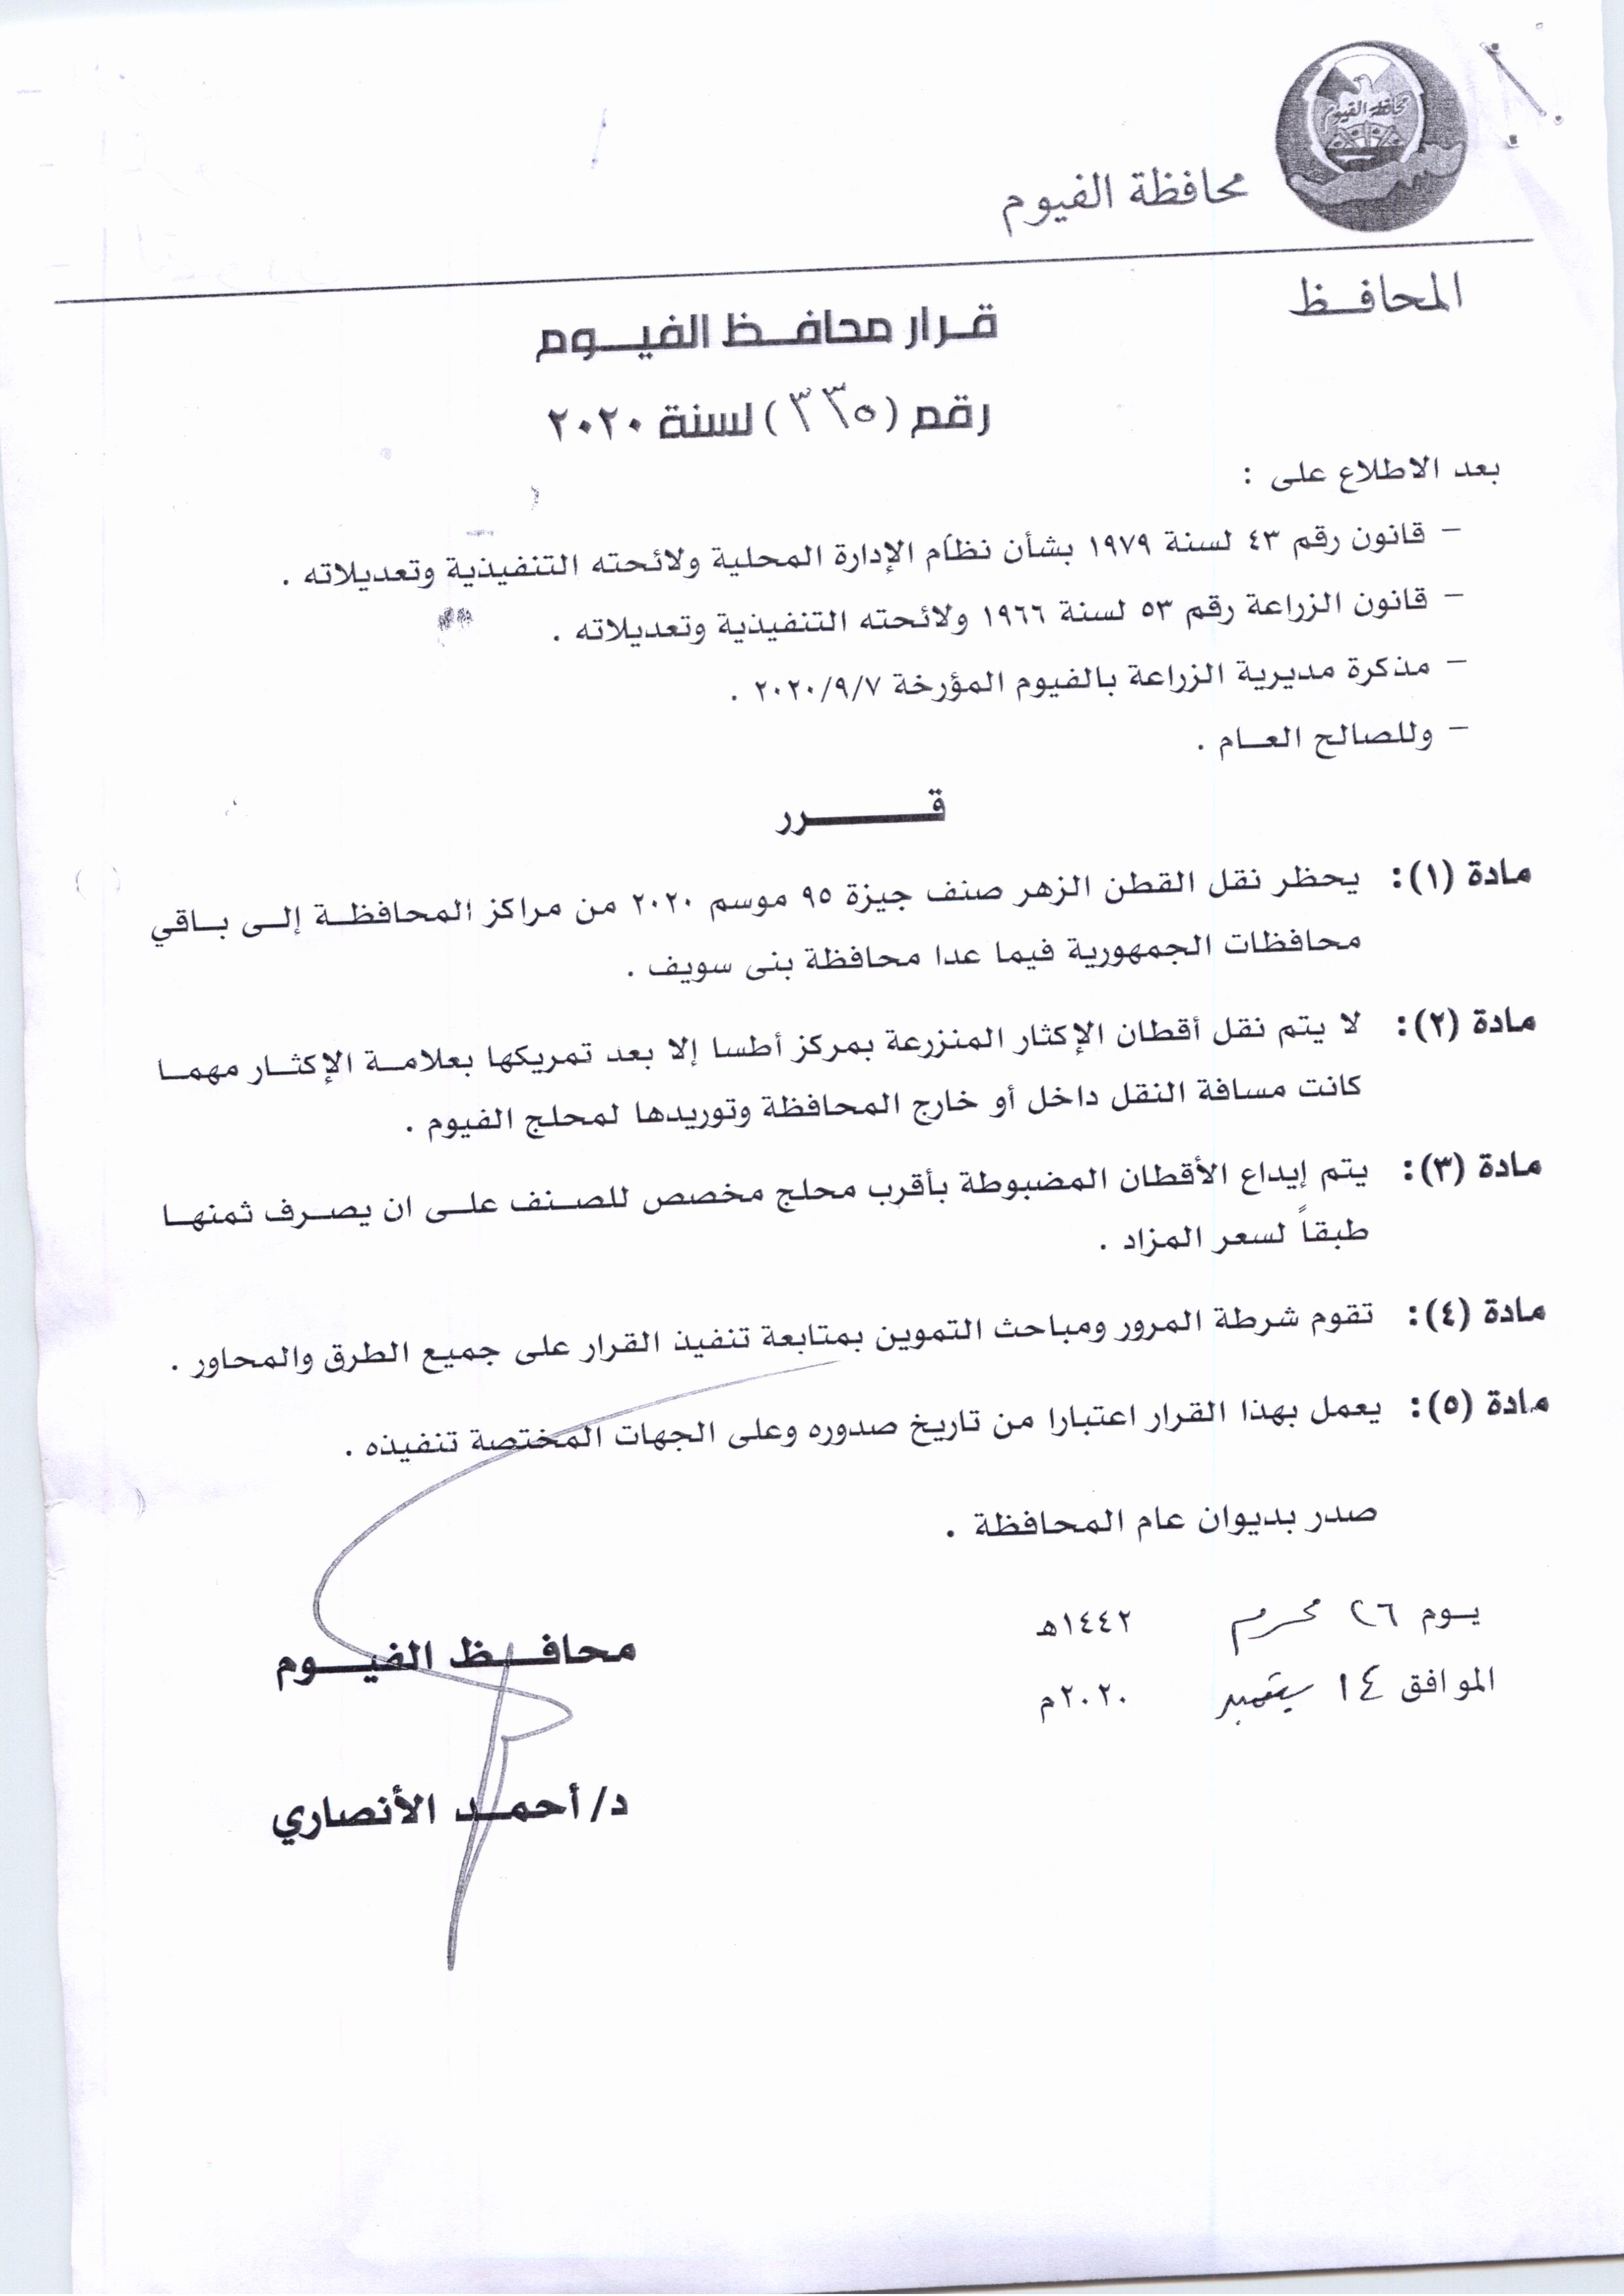 محافظة الفيوم
محافظة الفيوم
المحافــظ
قــرار محافــظ الفيـــوم
رقم (٣٣٥) لسنة ٢٠٢٠
بعد الاطلاع على :
- قانون رقم ٤٣ لسنة ١٩٧٩ بشأن نظام الإدارة المحلية ولائحته التنفيذية وتعديلاته .
- قانون الزراعة رقم ٥٣ لسنة ١٩٦٦ ولائحته التنفيذية وتعديلاته .
- مذكرة مديرية الزراعة بالفيوم المؤرخة ٢٠٢٠/٩/٧ .
- وللصالح العــام .
قـــــــرر
مادة (١): يحظر نقل القطن الزهر صنف جيزة ٩٥ موسم ٢٠٢٠ من مراكز المحافظــة إلــى بــاقي
محافظات الجمهورية فيما عدا محافظة بنى سويف .
مادة (٢): لا يتم نقل أقطان الإكثار المنزرعة بمركز أطسا إلا بعد تمريكها بعلامــة الإكثــار مهمــا
كانت مسافة النقل داخل أو خارج المحافظة وتوريدها لمحلج الفيوم .
مادة (٣): يتم إيداع الأقطان المضبوطة بأقرب محلج مخصص للصــنف علــى ان يصــرف ثمنهــا
طبقاً لسعر المزاد .
مادة (٤): تقوم شرطة المرور ومباحث التموين بمتابعة تنفيذ القرار على جميع الطرق والمحاور .
مادة (٥): يعمل بهذا القرار اعتبارا من تاريخ صدوره وعلى الجهات المختصة تنفيذه .
صدر بديوان عام المحافظة .
يــوم ٢٦ محرم ١٤٤٢هـ
الموافق ١٤ سبتمبر ٢٠٢٠م
محافــظ الفيـــوم
د/ أحمــد الأنصاري